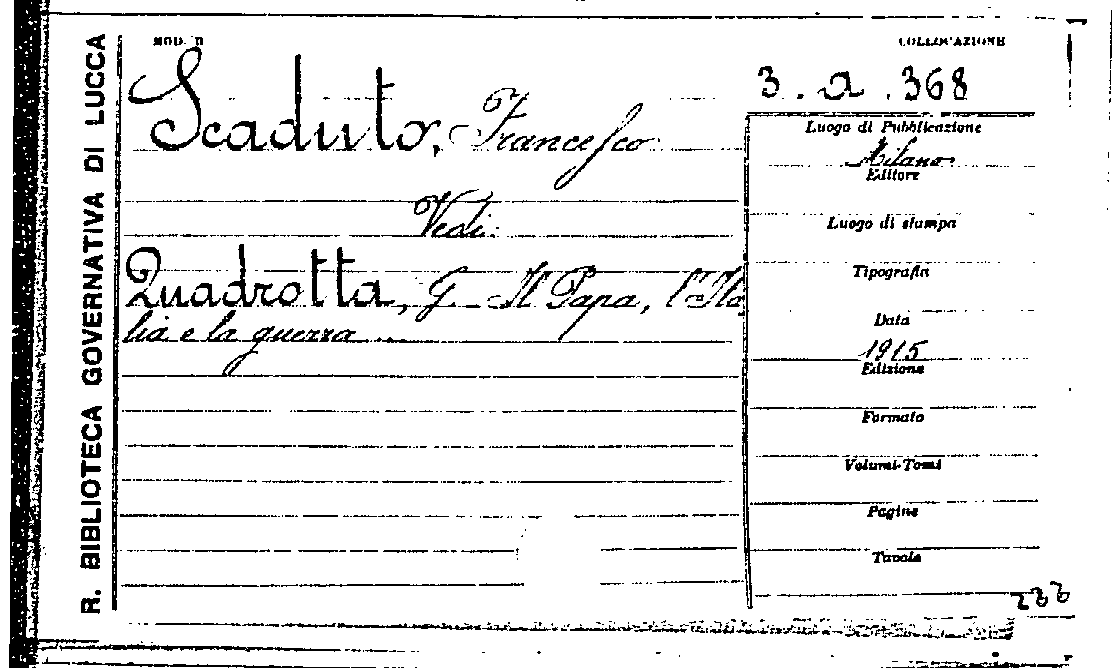 R. BIBLIOTECA GOVERNATIVA DI LUCCA
MOD. D
COLLOCAZIONE
3.a.368
Scaduto, Francesco
Vedi:
Quadrotta, G. Il Papa, l'Ita
lia e la guerra ...
Luogo di Pubblicazione
Milano
Editore
Luogo di stampa
Tipografia
Data
1915
Edizione
Formato
Volumi-Tomi
Pagine
Tavole